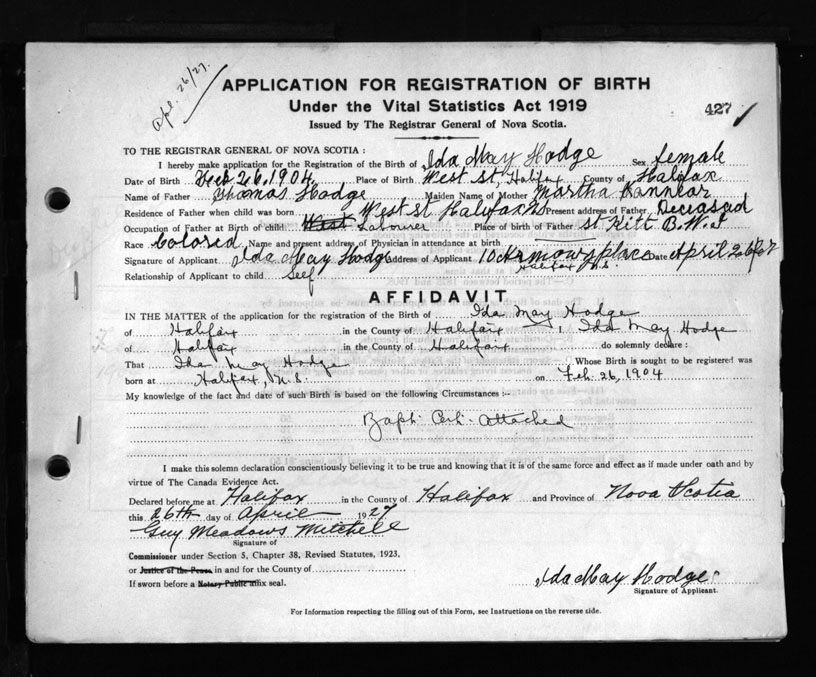 Apl. 26/27.
APPLICATION FOR REGISTRATION OF BIRTH
Under the Vital Statistics Act 1919
427
Issued by The Registrar General of Nova Scotia.
TO THE REGISTRAR GENERAL OF NOVA SCOTIA :
I hereby make application for the Registration of the Birth of Ida May Hodge Sex female
Date of Birth Feb 26, 1904 Place of Birth West St, Halifax County of Halifax
Name of Father Thomas Hodge Maiden Name of Mother Martha
Residence of Father when child was born West St Halifax NS Present address of Father Deceased
Occupation of Father at Birth of child Labourer Place of birth of Father St Kitt B.W.I
Race Colored Name and present address of Physician in attendance at birth
Signature of Applicant Ida May Hodge Address of Applicant 10 place Halifax N.S. Date April 26/27
Relationship of Applicant to child Self
AFFIDAVIT
IN THE MATTER of the application for registration of the Birth of Ida May Hodge
of Halifax in the County of Halifax I Ida May Hodge
of Halifax in the County of Halifax do solemnly declare :
That Ida May Hodge Whose Birth is sought to be registered was
born at Halifax, N.S. on Feb. 26, 1904
My knowledge of the fact and date of such Birth is based on the following Circumstances :—
Bapt. Cert. Attached
I make this solemn declaration conscientiously believing it to be true and knowing that it is of the same force and effect as if made under oath and by
virtue of The Canada Evidence Act.
Declared before me at Halifax in the County of Halifax and Province of Nova Scotia
this 26th day of April 1927
Guy Meadows Mitchell
Signature of
Commissioner under Section 5, Chapter 38, Revised Statutes, 1923.
or Justice of the Peace in and for the County of
If sworn before a Notary Public affix seal.
Ida May Hodge
Signature of Applicant.
For Information respecting the filling out of this Form, see Instructions on the reverse side.